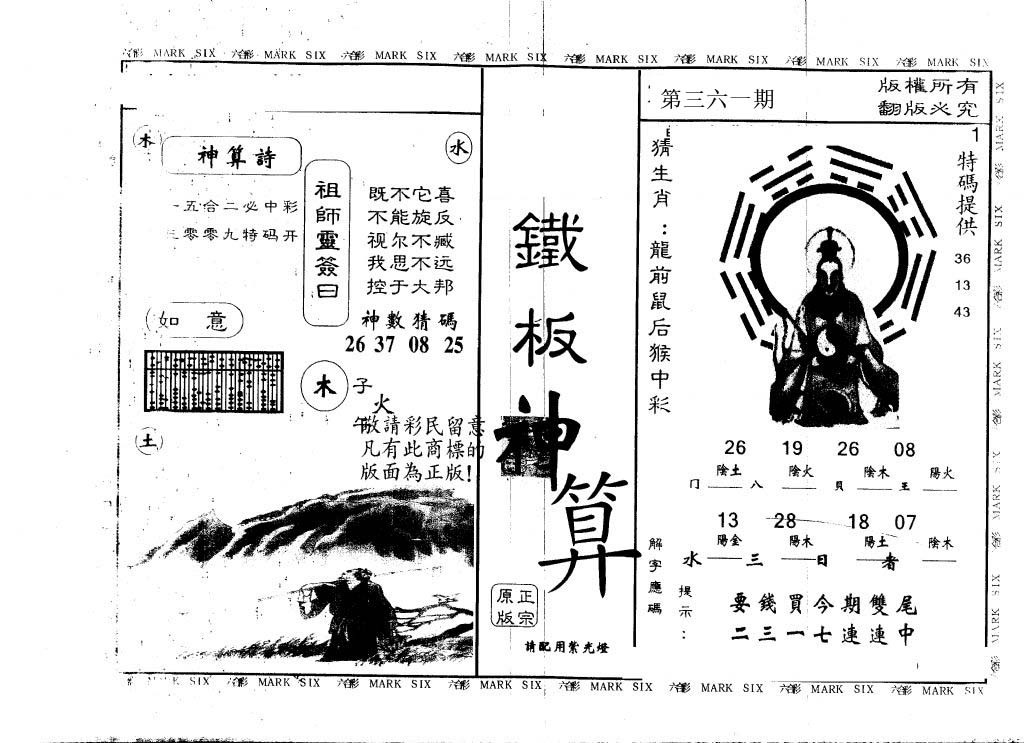 六彩 MARK SIX 六彩 MARK SIX 六彩 MARK SIX 六彩 MARK SIX 六彩 MARK SIX 六彩 MARK SIX 六彩 MARK SIX 六彩 MARK SIX
木
神算詩
水
五合二必中彩
零零九特码开
祖師靈簽曰
既不它喜
不能旋反
视尔不臧
我思不远
控于大邦
神數猜碼
26 37 08 25
如意
木
子
火
午
敬請彩民留意
凡有此商標的
版面為正版!
土
鐵板神算
正宗
原版
請配用紫光燈
第三六一期
版權所有
翻版必究
猜生肖:龍前鼠后猴中彩
1
特碼提供
36
13
43
26 19 26 08
陰土 陰火 陰木 陽火
八 貝 王
13 28 18 07
陽金 陽木 陽土 陰木
水 三 日 者
解字應碼
提示:
要錢買今期雙尾
二三一七連連中
六彩 MARK SIX 六彩 MARK SIX 六彩 MARK SIX 六彩 MARK SIX 六彩 MARK SIX
SIX 六彩 MARK SIX 六彩 MARK SIX 六彩 MARK SIX 六彩 MARK SIX 六彩 MARK SIX 六彩 MARK SIX 六彩 MARK SIX